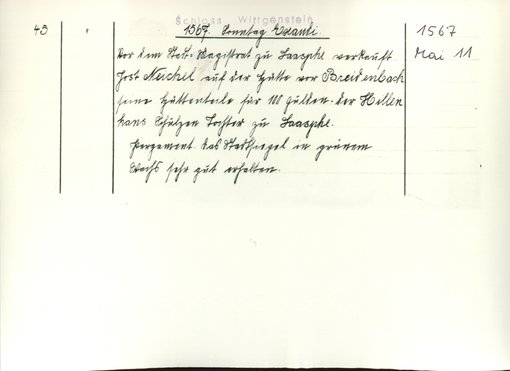 Schloss Wittgenstein
45
1567. Sonntag Exaudi
1567
Mai 11
Vor dem Stadt-Magistrat zu Laasphe verkauft
Jost Reichel auf der Hütte vor Breidenbach
seine Hüttenteile für 100 Gulden der Hellen
Hans Schulzen Tochter zu Laasphe.
Pergament. Das Stadtsiegel in grünem
Wachs sehr gut erhalten.